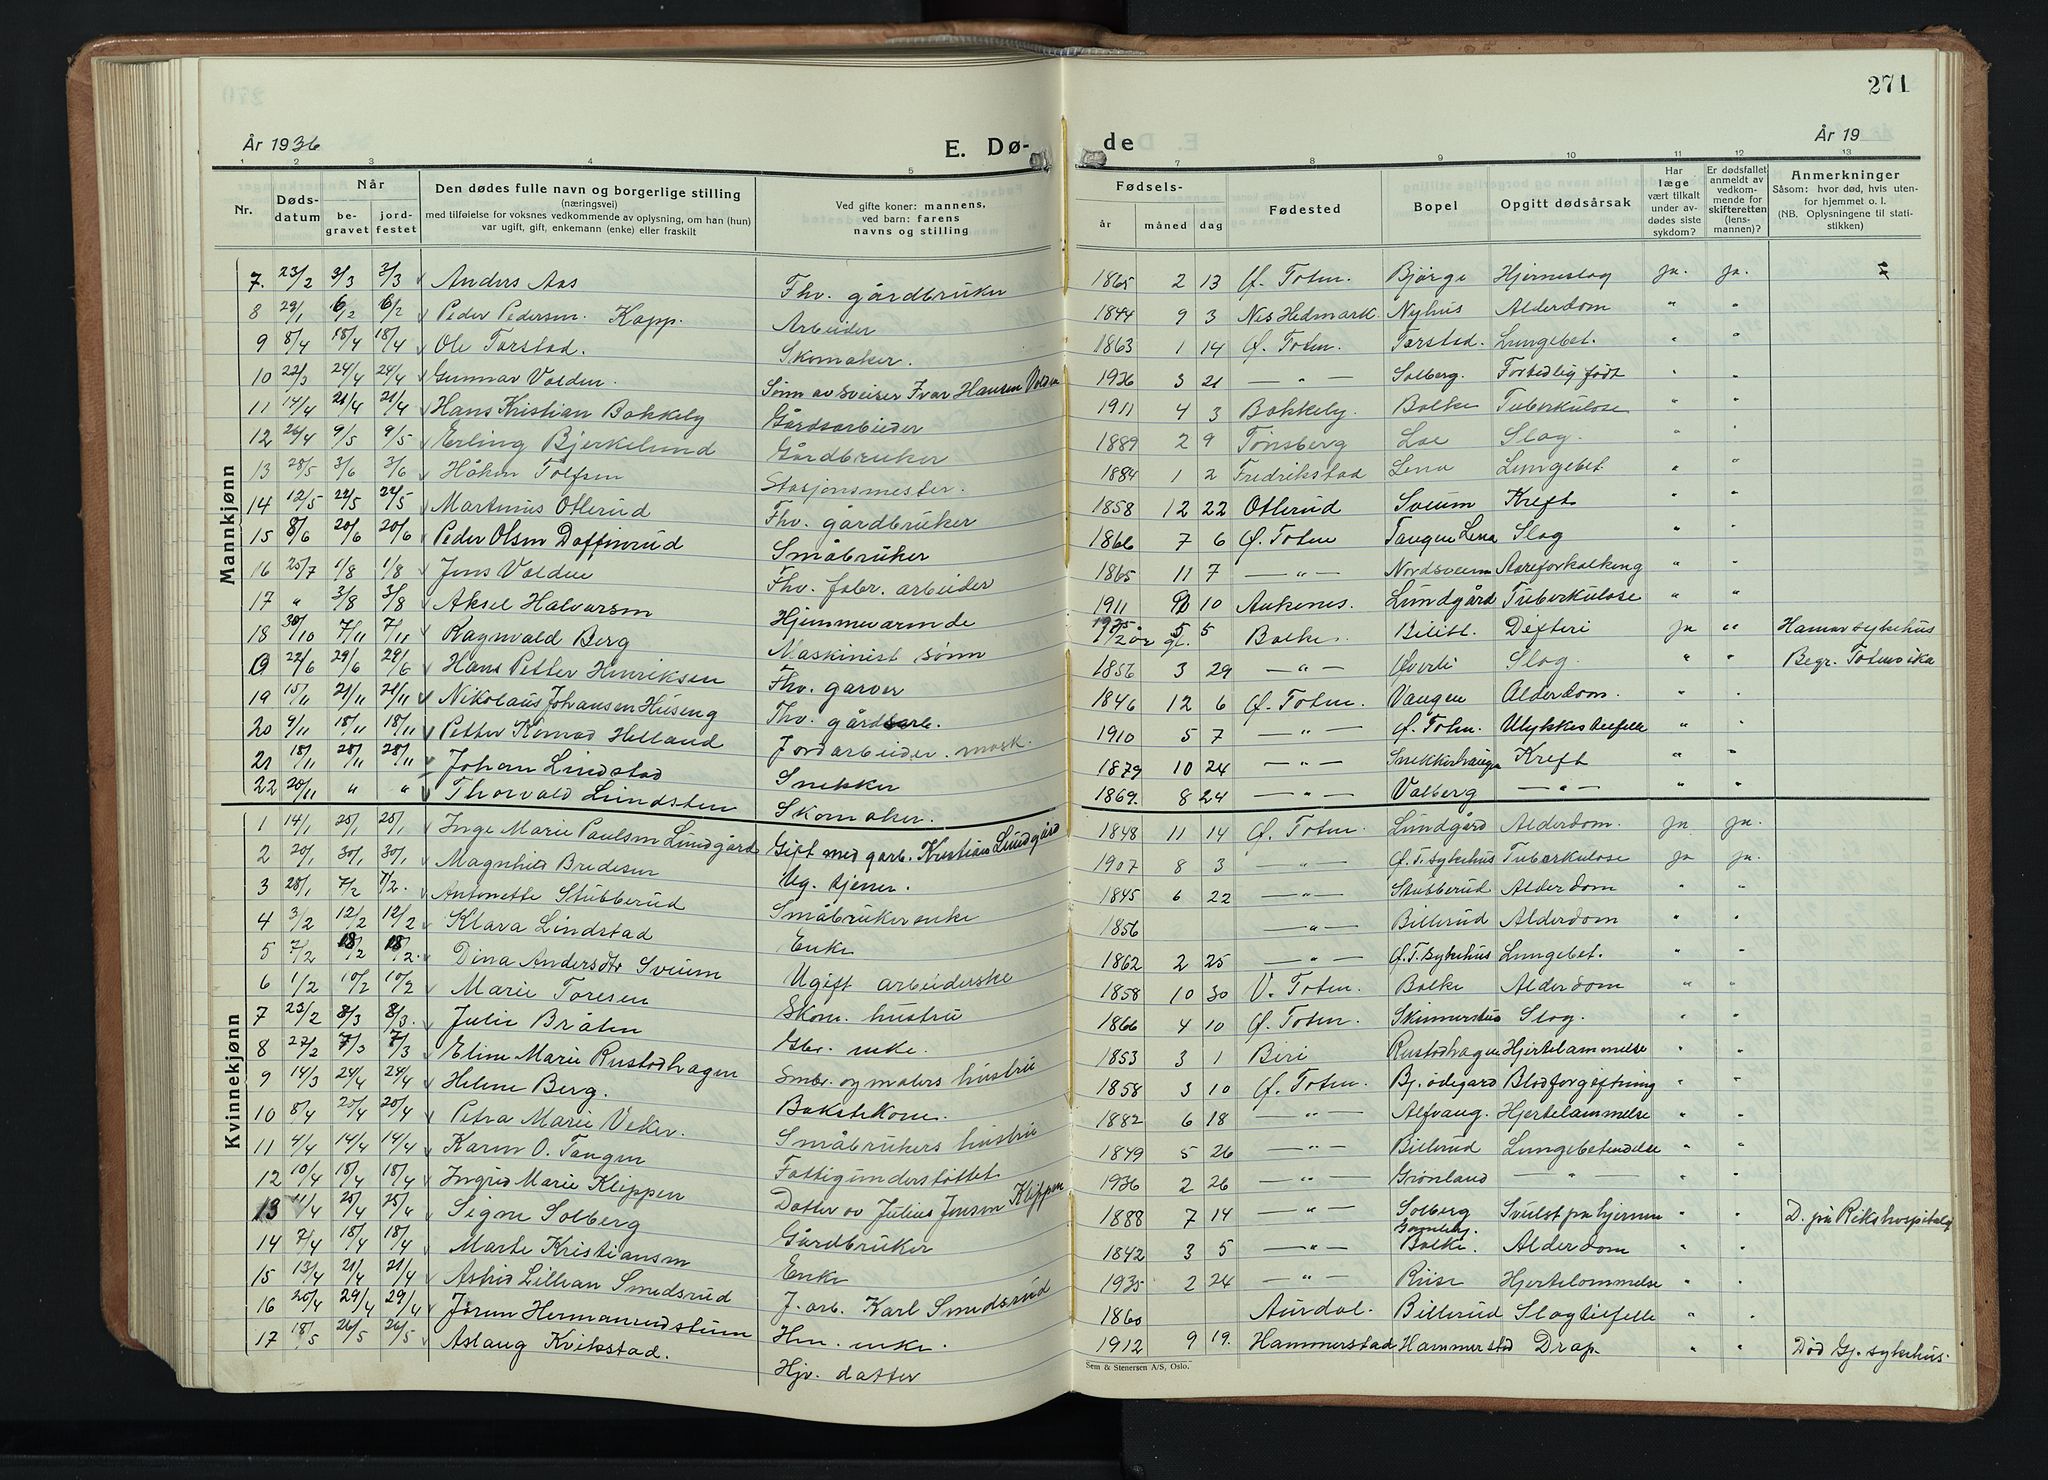 271
År 1936 E. Dø- de År 19
1 2 3 4 5 7 8 9 10 11 12 13
Nr. Dødsdatum Når begravet jordfestet Den dødes fulle navn og borgerlige stilling (næringsvei) med tilføielse for voksnes vedkommende av oplysning, om han (hun) var ugift, gift, enkemann (enke) eller fraskilt Ved gifte koner: mannens, ved barn: farens navns og stilling Fødsels- år måned dag Fødested Bopel Opgitt dødsårsak Har læge vært tilkalt under avdødes siste sykdom? Er dødsfallet anmeldt av vedkommende for skifteretten (lensmannen)? Anmerkninger Såsom: hvor død, hvis utenfor hjemmet o. l. (NB. Oplysningene til statistikken)
Mannkjønn
7. 23/2 3/3 3/3 Anders Aas Fhv. gårdbruker 1865 2 13 Ø. Toten. Bjørge Hjerneslag ja. ja.
8 29/1 6/2 6/2 Peder Pedersen Kapp. Arbeider 1844 9 3 Nes Hedmark. Nyhus Alderdom " "
9 8/4 18/4 18/4 Ole Torstad. Skomaker. 1863 1 14 Ø. Toten. Torstad. Lungebet. " "
10 22/3 24/4 24/4 Gunnar Volden. Sønn av sveiser Ivar Hansen Volden 1936 3 21 — " — Solberg. Fortidlig født " "
11 14/4 21/4 21/4 Hans Kristian Bakkely Gårdsarbeider 1911 4 3 Bakkely. Balke Tuberkulose " "
12 26/4 9/5 9/5 Erling Bjerkelund Gårdbruker 1889 2 9 Tønsberg Loe Slag. " "
13 28/5 3/6 3/6 Håkon Tolfsen Stasjonsmester. 1884 1 2 Fredrikstad Lena Lungebet " "
14 12/5 22/5 22/5 Martinius Otterud Fhv. gårdbruker 1858 12 22 Otterud Sveum Kreft " "
15 8/6 20/6 20/6 Peder Olsen Daffinrud Småbruker 1866 7 6 Ø. Toten Tangen Lena Slag " "
16 25/7 1/8 1/8 Jens Volden Fhv. fabr. arbeider 1865 11 7 — " — Nordsveen Aareforkalking " "
17 " 3/8 3/8 Aksel Halvorsen Hjemmeværende 1911 10 Aukenes. Lundgård Tuberkulose " "
18 30/10 7/11 7/11 Ragnvald Berg Maskinist sønn 1½ år gl. 5 5 Balke. Bilitt. Difteri ja " Hamar sykehus
22/6 29/6 29/6 Hans Petter Henriksen Fhv. garver 1856 3 29 — " — Øverli Slag. " " Begr. Totenvika
19 15/11 21/11 21/11 Nikolaus Johansen Huseng Fhv. gårdsarb. 1846 12 6 Ø. Toten. Vangen Alderdom. " "
20 9/11 18/11 18/11 Petter Konrad Helland Jordarbeider. mask. 1910 5 7 — " — Ø. Toten. Ulykkestilfelle "
21 18/11 28/11 28/11 Johan Lindstad Snekker 1879 10 24 — " — Snekkerhaugen Kreft " "
22 20/11 " " Thorvald Lundsten Skomaker. 1869. 8 24 — " — Valberg — " — " "
Kvinnekjønn
1 14/1 25/1 25/1 Inge Marie Paulsen Lundgård Gift med garb. Kristian Lundgård 1848 11 14 Ø. Toten. Lundgård Alderdom. ja ja.
2 20/1 30/1 30/1 Magnhild Bredesen Ug. tjener. 1907 8 3 — " — Ø. T. sykehus Tuberkulose ja ja.
3 28/1 7/2 7/2. Antonette Stubberud Småbrukerenke 1845 6 22 — " — Stubberud Alderdom " "
4 3/2 12/2 12/2 Klara Lindstad Enke 1856 — " — Billerud Alderdom " "
5 7/2 18/2 18/2. Dina Andersdtr Sveum Ugift arbeiderske 1862 2 25 — " — Ø. T. sykehus Lungebet. " "
6 1/2 10/2 10/2 Marie Toresen Skom. hustru 1858 10 30 V. Toten. Balke Alderdom " "
7 23/2 8/3 8/3. Julie Bråten Gbr. enke. 1866 4 10 Ø. Toten. Skinnerstuo Slag. " "
8 27/2 7/3 7/3 Eline Marie Rustadhagen Smbr. og malers hustru 1853 3 1 Biri Rustadhagen Hjertelammelse " "
9 14/3 24/4 24/4 Helene Berg. Bakstekone. 1858 3 10 Ø. Toten. Bj. ødegård Blodforgiftning " "
10 8/4 20/4 20/4 Petra Marie Veker. Småbrukers hustru 1882 6 18 — " — Alfvang. Hjertelammelse " "
11 4/4 14/4 14/4 Karen O. Tangen Fattigunderstøttet 1849 5 26 — " — Billerud Lungebetendelse " "
12 10/4 18/4 18/4 Ingrid Marie Klippen Datter av Julius Jensen Klippen 1936 2 26 — " — Grønland — " — " "
13 11/4 25/4 25/4 Signe Solberg Gårdbruker 1888 7 14 — " — Solberg Svulst på hjernen " " D. på Rikshospitalet
14 7/4 18/4 18/4 Marte Kristiansen Enke 1842 3 5 — " — Balke. Alderdom " "
15 13/4 21/4 21/4 Astrid Lillian Smedsrud J. arb. Karl Smedsrud 1935 2 24 — " — Riise Hjertelammelse " "
16 20/4 29/4 29/4 Jørun Hermanundstuen Hm. enke. 1860 Aurdal. Billerud Slagtilfelle " "
17 18/5 26/5 26/5 Aslaug Kvikstad. Hjv. datter 1912 9 19. Hammerstad Hammerstad Drap. " " Død Gj. sykehus.
Sem & Stenersen A/S, Oslo.